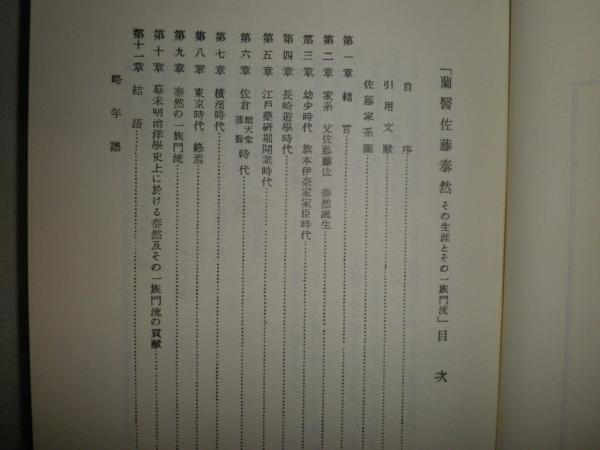 「蘭醫佐藤泰然 その生涯とその一族門流」目次
自序
引用文献
佐藤家系圖
第一章 緒言
第二章 家系 父佐藤藤佐 泰然誕生
第三章 幼少時代 旗本伊奈家家臣時代
第四章 長崎遊學時代
第五章 江戸藥研堀開業時代
第六章 佐倉 順天堂 藩醫 時代
第七章 横濱時代
第八章 東京時代 終焉
第九章 泰然の一族門流
第十章 幕末明治洋學史上に於ける泰然及その一族門流の貢献
第十一章 結語
略年譜